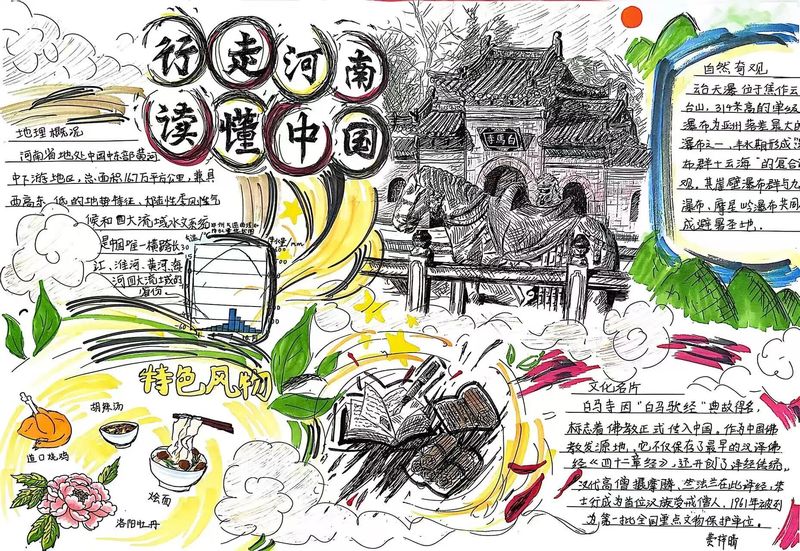 行走河南
读懂中国
地理概况
河南省地处中国中东部黄河
中下游地区,总面积16.7万平方公里,兼具
西高东低的地理特征、大陆性季风性气
候和四大流域水文系统
是中国唯一横跨长
江、淮河、黄河、海
河四大流域的
省份。
白馬寺
自然奇观
云台天瀑位于焦作云
台山,314米高的单级
瀑布为亚洲落差最大的
瀑布之一,丰水期形成
的复合
观,其崖壁瀑布群与九
瀑布、摩星岭瀑布共同
成避暑圣地。
特色风物
胡辣汤
道口烧鸡
烩面
洛阳牡丹
文化名片
白马寺因“白马驮经”典故得名,
标志着佛教正式传入中国。作为中国佛
教发源地,它不仅保存了最早的汉译佛
经《四十二章经》,还开创了译经传统。
汉代高僧摄摩腾、竺法兰在此译经,朱
士行成为首位汉族受戒僧人,1961年被列
为第一批全国重点文物保护单位。